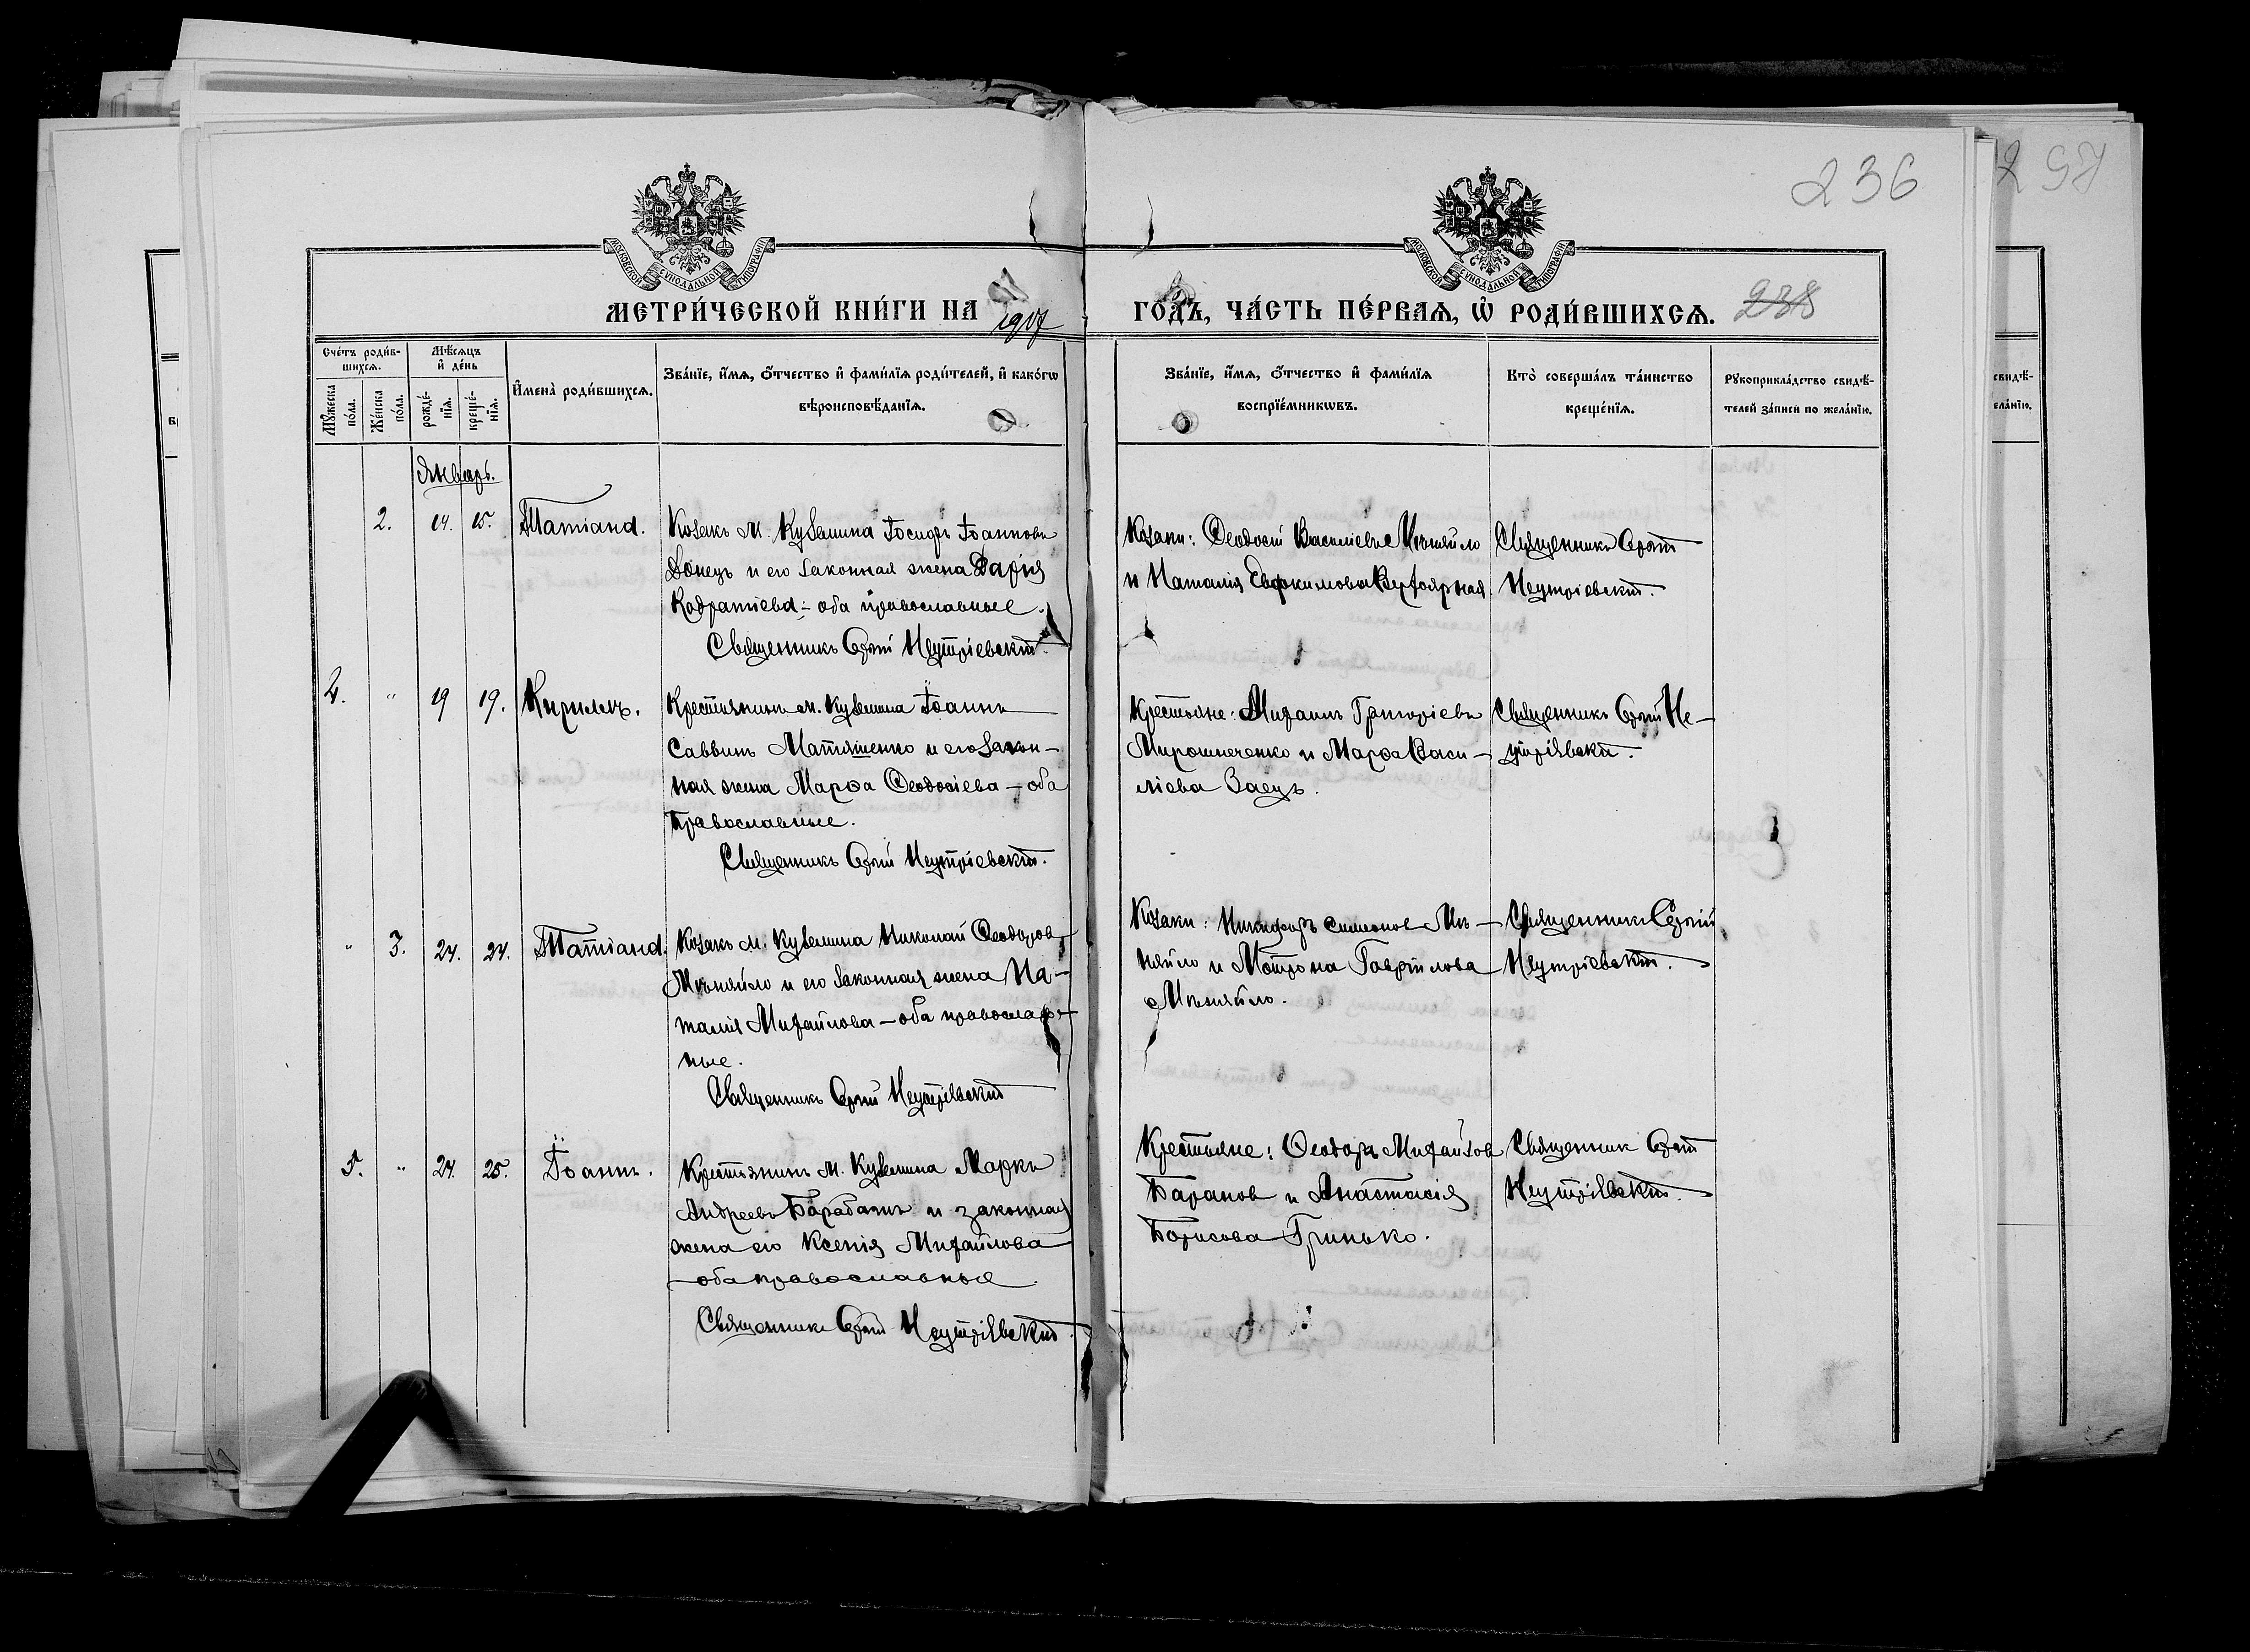 236
297
МОСКОВСКОЙ СУНОДАЛЬНОЙ ТИПОГРАФІИ
МОСКОВСКОЙ СУНОДАЛЬНОЙ ТИПОГРАФІИ
МЕТРИ́ЧЕСКОЙ КНИ́ГИ НА 1917
ГО́ДЪ, ЧА́СТЬ ПЕ́РВАѦ, Ѡ҆ РОДИ́ВШИХСѦ. 238
Сче́тъ роди́в-
шихсѧ.
Мѣ́сѧцъ
и҆ де́нь
Мꙋ́жеска
по́ла.
Же́нска
по́ла.
рожде́-
нїѧ.
креще́-
нїѧ.
И҆мена̀ роди́вшихсѧ.
Зва́нїе, и҆́мѧ, о҆́тчество и҆ фами́лїѧ роди́телей, и҆ како́гѡ
вѣроисповѣ́данїѧ.
Зва́нїе, и҆́мѧ, о҆́тчество и҆ фами́лїѧ
воспрїе́мникѡвъ.
Кто̀ соверша́лъ та́инство
креще́нїѧ.
Рꙋкоприкла́дство свидѣ́-
телей за́писи по жела́нїю.
свидѣ́-
ела́нїю.
Январь.
2. 14. 15. Татіана.
Козакъ м. Куземина Іосифъ Іоанновъ
Донецъ и его законная жена Дарія
Кодратіева - оба православные.
Священникъ Сергій
Козаки: Ѳеодосій Василіевъ Мѣняйло
и Наталія Евфокимова
Священникъ Сергій
4. " 19 19. Кириллъ.
Крестьянинъ м. Куземина Іоаннъ
Саввинъ Матяшенко и его закон-
ная жена Марѳа Ѳеодосіева - оба
православные.
Священникъ Сергій
Крестьяне: Михаилъ Григоріевъ
Мирошниченко и Марѳа Васи-
ліева Заецъ.
Священникъ Сергій
" 3. 24. 24. Татіана.
Козакъ м. Куземина Николай Ѳеодоровъ
Мѣняйло и его законная жена На-
талія Михайлова - оба православ-
ные.
Священникъ Сергій
Козаки: Никифоръ Симеонов Мѣ-
няйло и Мотрона Гавріилова
Мѣняйло.
Священникъ Сергій
5. " 24. 25. Іоаннъ.
Крестьянинъ м. Куземина Маркъ
Андреевъ Барабашъ и законная
жена его Ксенія Михайлова
- оба православные.
Священникъ Сергій
Крестьяне: Ѳеодоръ Михайлов
Баранов и Анастасія
Борисова Гринько.
Священник Сергій